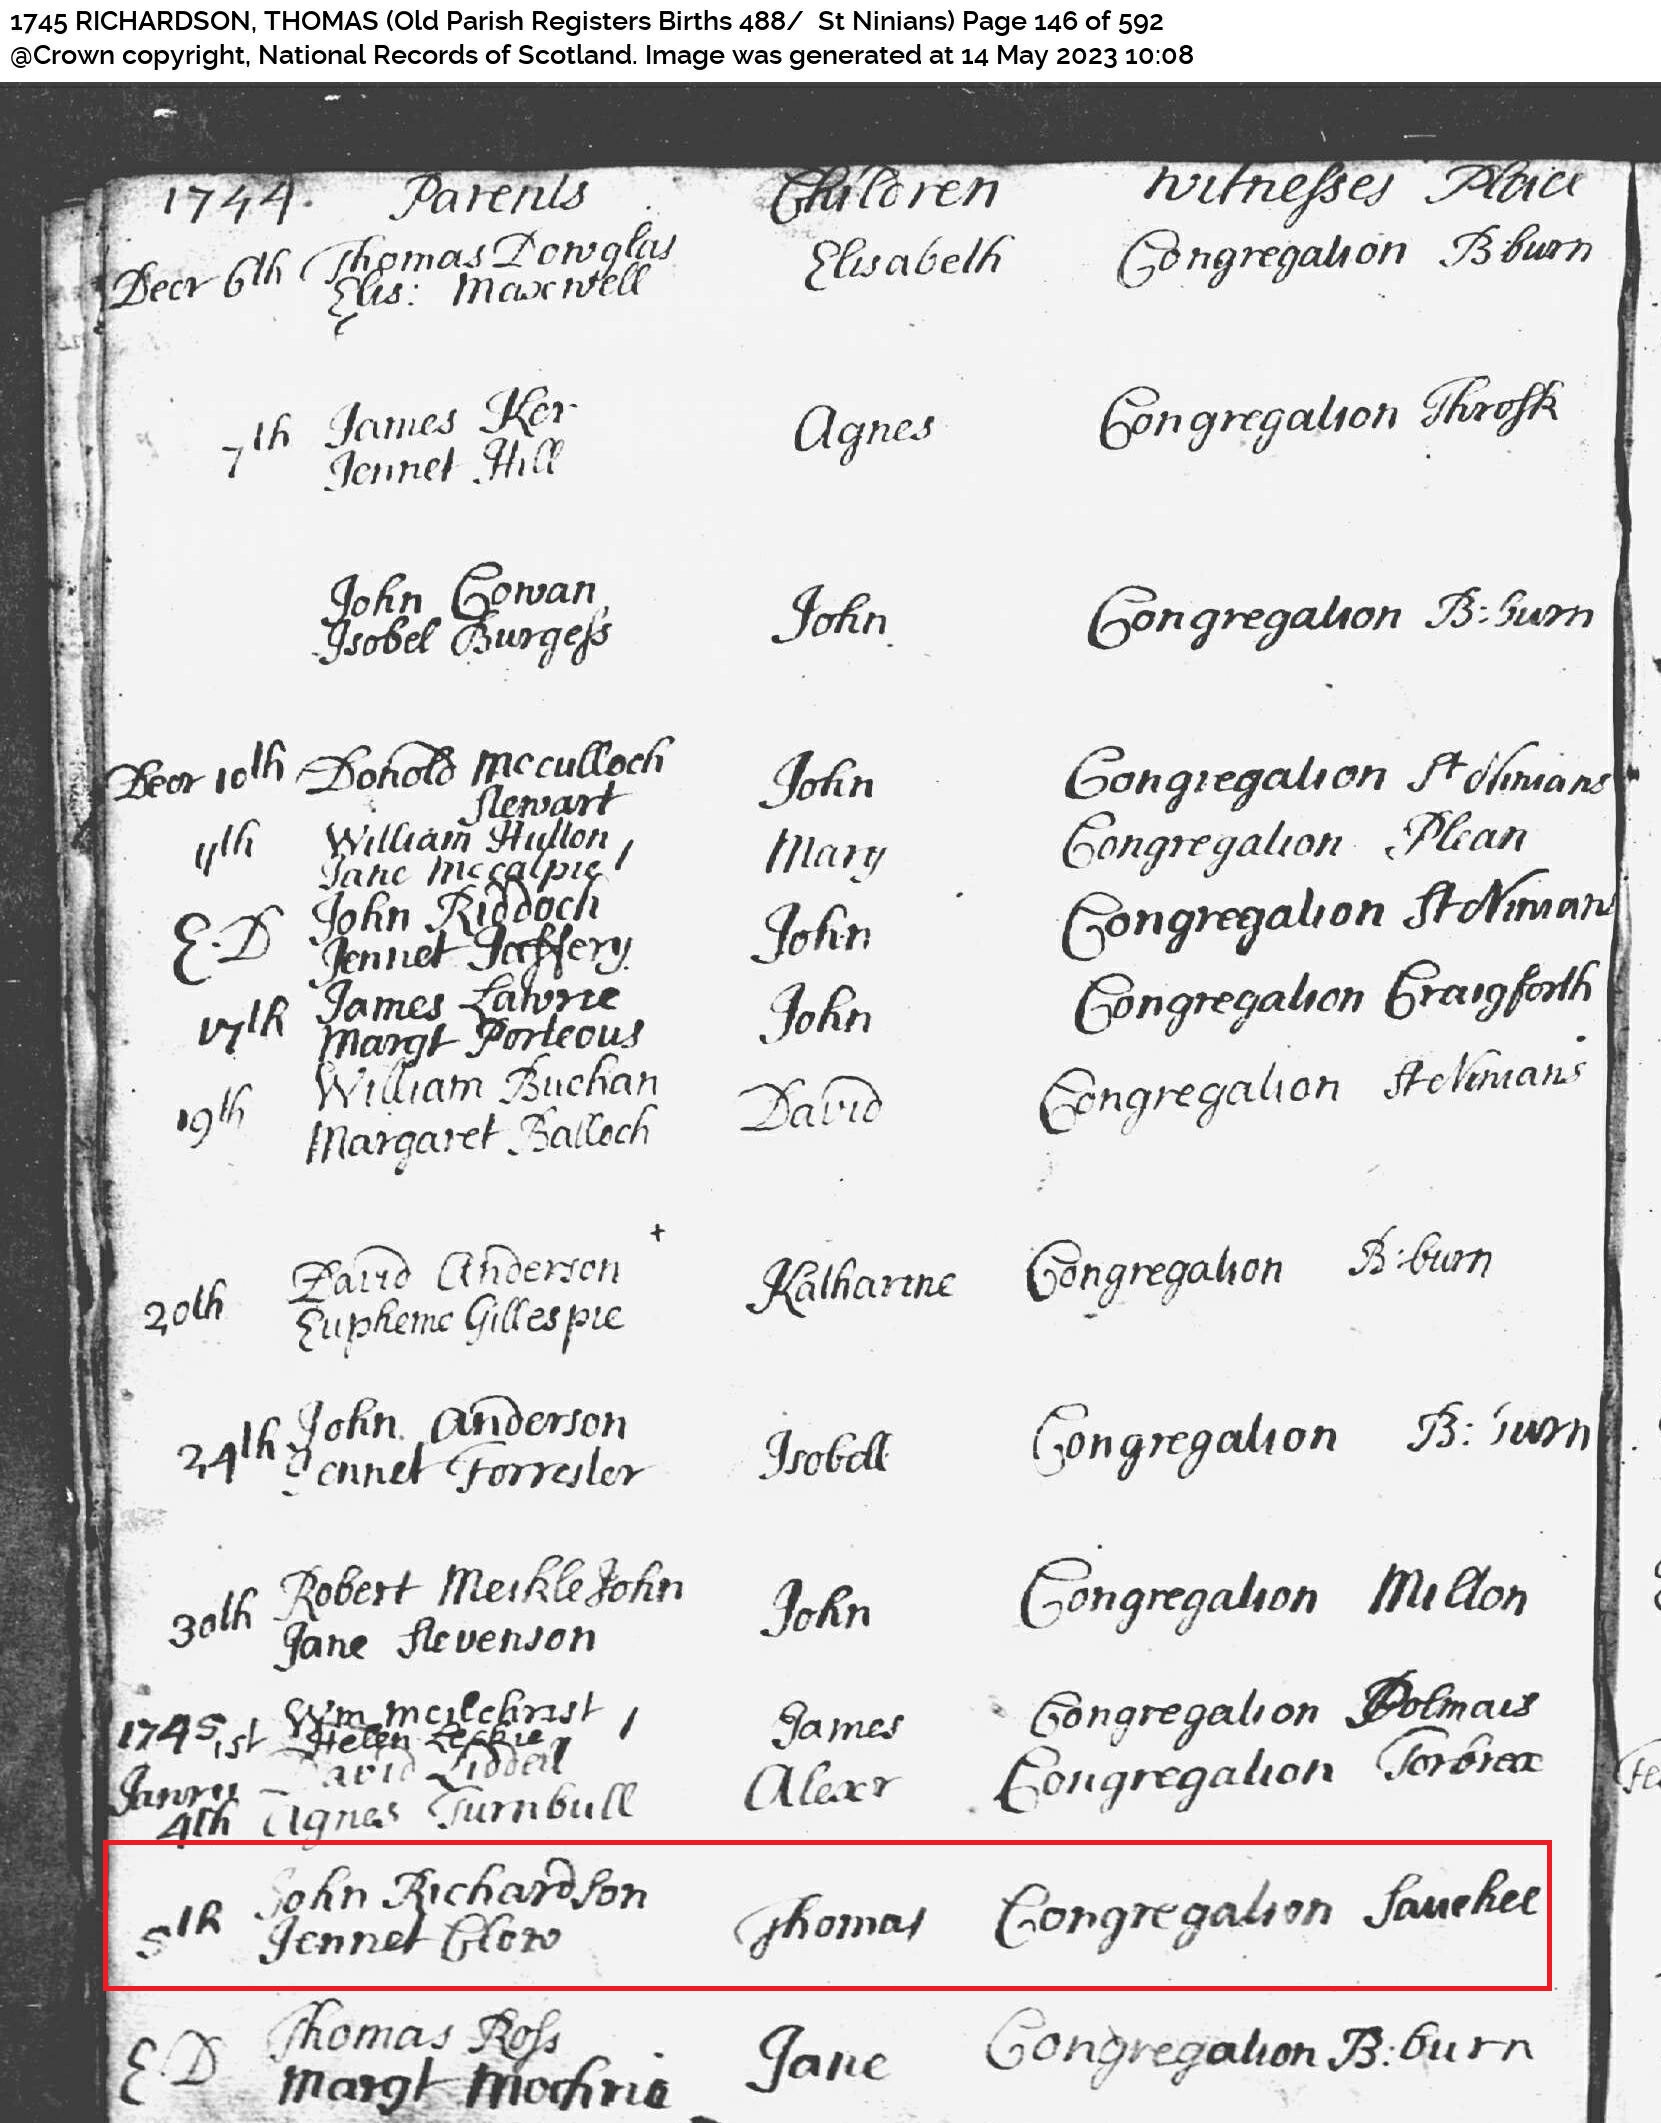 1745 RICHARDSON, THOMAS (Old Parish Registers Births 488/ St Ninians) Page 146 of 592
@Crown copyright, National Records of Scotland. Image was generated at 14 May 2023 10:08
1744. Parents Children Witnesses Place
Decr 6th Thomas Dowglas Elisabeth Congregation B:burn
Elis: Maxwell
7th James Ker Agnes Congregation Throsk
Jennet Hill
John Cowan John Congregation B:burn
Isobel Burgess
Decr 10th Donold Mcculloch John Congregation St Ninians
Stewart
11th William Hutton Mary Congregation Plean
Jane Mccalpie
E:D John Riddoch John Congregation St Ninians
Jennet Jaffery
17th James Lawrie John Congregation Craigforth
Margt Porteous
19th William Buchan David Congregation St Ninians
Margaret Balloch
20th David Anderson Katharine Congregation B:burn
Eupheme Gillespie
24th John Anderson Isobell Congregation B:burn
Jennet Forrester
30th Robert MeikleJohn John Congregation Milton
Jane Stevenson
1745 1st Wm Mcilchrist James Congregation Polmais
Helen Leckie
Janry David Liddell Alexr Congregation Torbrex
4th Agnes Turnbull
5th John Richardson Thomas Congregation Sauchee
Jennet Clow
E:D Thomas Ross Jane Congregation B:burn
Margt Mochrie